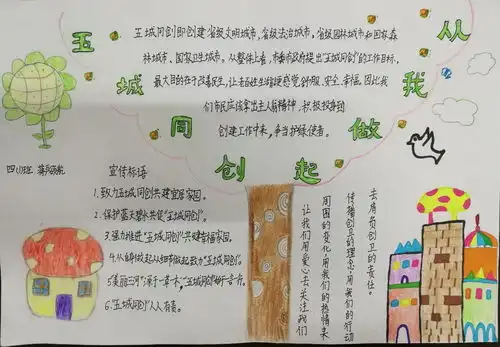 五城同创 从我做起
五城同创即创建省级文明城市,省级法治城市,省级园林城市和国家森
林城市、国家卫生城市。从整体上看,市委市政府提出"五城同创"的工作目标,
最大目的在于改善民生,让老百姓生活更感觉舒服、安全、幸福。因此我
们市民应该拿出主人翁精神,积极投身到
创建工作中来,争当护绿使者。
四(4)班
宣传标语
1.致力五城同创共建宜居家园。
2.保护蓝天碧水共促"五城同创"。
3.强力推进"五城同创"共建幸福家园。
4.从自身做起从细节做起致力"五城同创"。
5.美丽三河"源于一草一木","五城同创"始于一言一行。
6."五城同创"人人有责。
让我们用爱心去关注我们
周围的变化,用我们的热情来
传播创卫的理念,用我们的行动
去肩负创卫的责任。